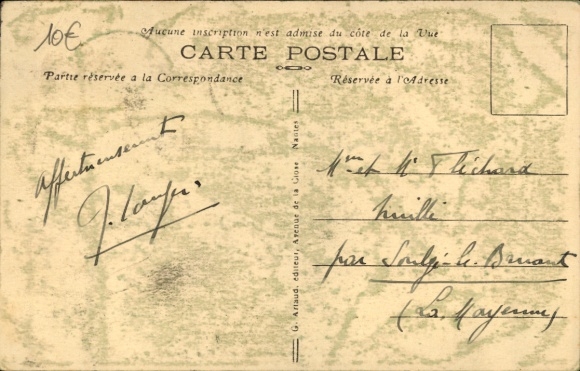 10€
Aucune inscription n'est admise du côté de la Vue
CARTE POSTALE
Partie réservée a la Correspondance
Réservée à l'Adresse
Affectueusement
G. Artaud, éditeur, Avenue de la Close Nantes
Mme et Mr Fléchard
Nuillé
par Soulgé-le-Bruant
(La Mayenne)